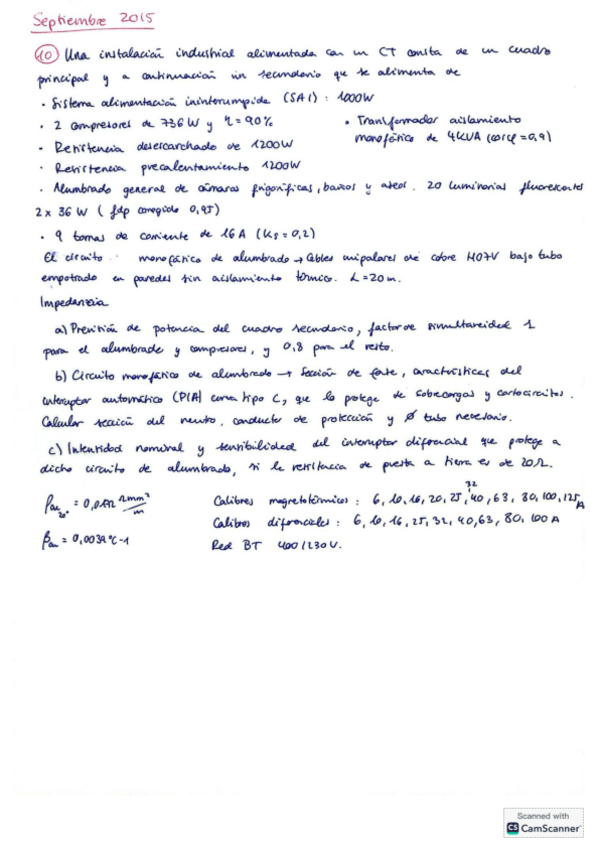 Septiembre 2015
10) Una instalación industrial alimentada con un CT consta de un cuadro
principal y a continuación un secundario que se alimenta de
· Sistema alimentación ininterrumpida (SAI) : 1000W
· 2 compresores de 736 W y η = 90%
· Transformador aislamiento
monofásico de 4KVA (cosφ = 0,9)
· Resistencia desescarchado de 1200W
· Resistencia precalentamiento 1200W
· Alumbrado general de cámaras frigoríficas, baños y aseos. 20 luminarias fluorescentes
2 x 36 W ( fdp corregido 0,95)
· 9 tomas de corriente de 16 A (Ks = 0,2)
El circuito monofásico de alumbrado → Cables unipolares de cobre H07V bajo tubo
empotrado en paredes sin aislamiento térmico. L = 20 m.
Impedancia
a) Previsión de potencia del cuadro secundario, factor de simultaneidad 1
para el alumbrado y compresores, y 0,8 para el resto.
b) Circuito monofásico de alumbrado → Sección de fase, características del
interruptor automático (PIA) curva tipo C, que lo protege de sobrecargas y cortocircuitos.
Calcular sección del neutro, conductor de protección y ∅ tubo necesario.
c) Intensidad nominal y sensibilidad del interruptor diferencial que protege a
dicho circuito de alumbrado, si la resistencia de puesta a tierra es de 20Ω.
Calibres magnetotérmicos : 6, 10, 16, 20, 25, 32, 40, 63, 80, 100, 125 A
Calibres diferenciales : 6, 10, 16, 25, 32, 40, 63, 80, 100 A
= 0,0039 ºC-1
Red BT 400/230V.
Scanned with
CS CamScanner